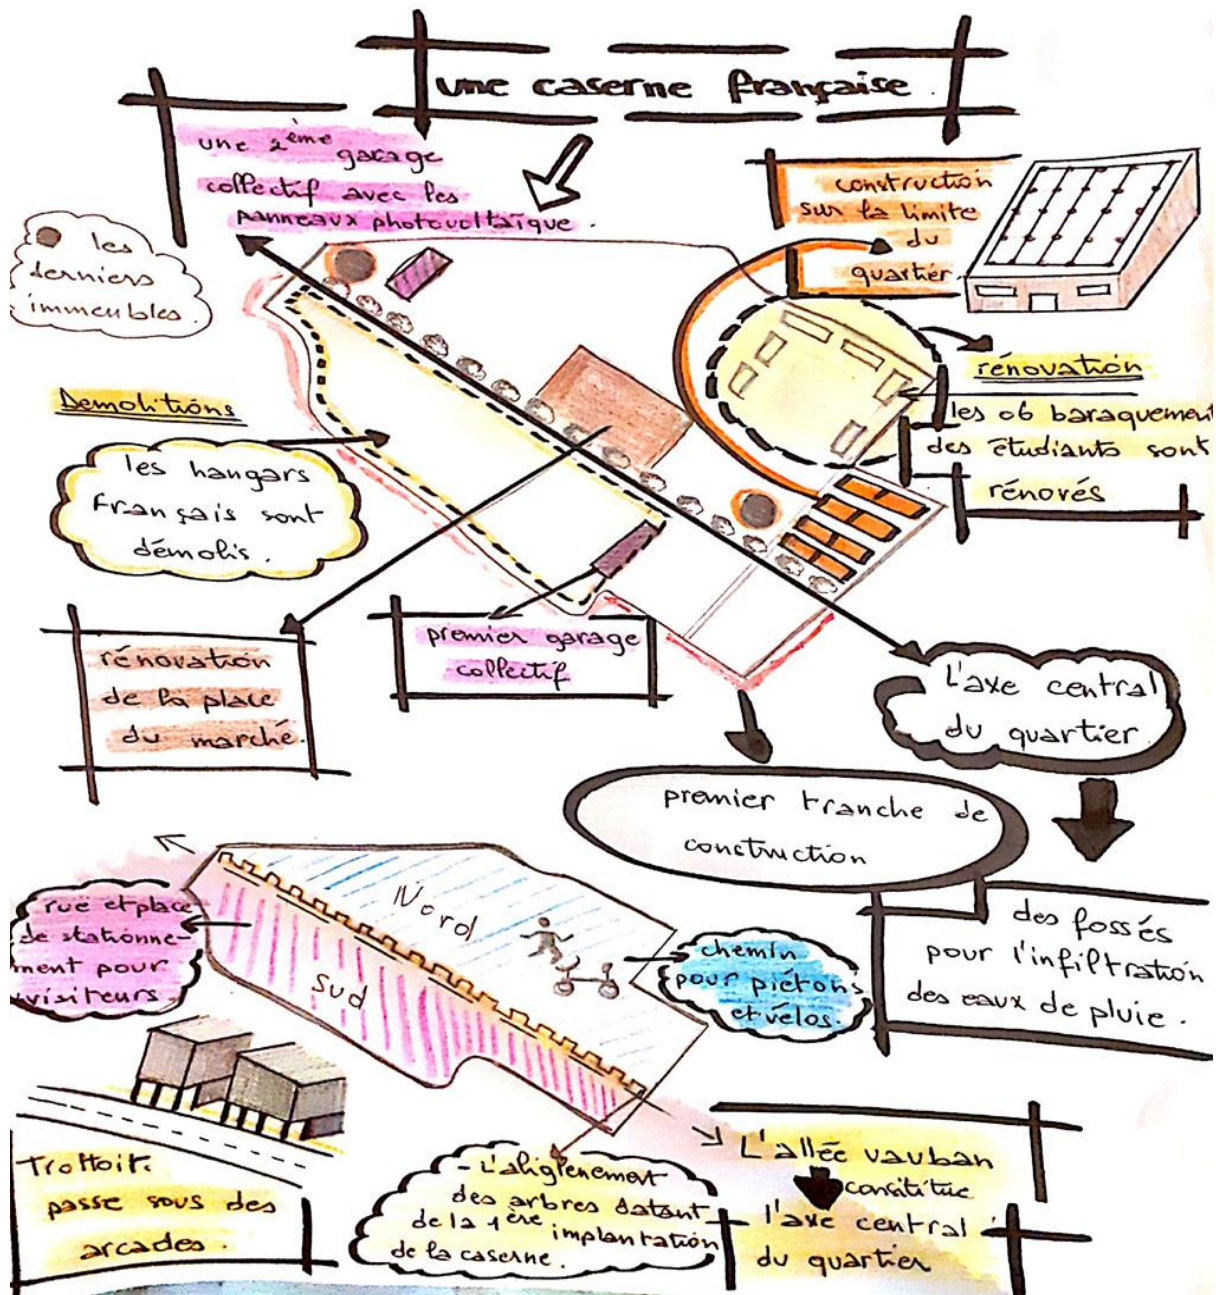 une caserne française.
une 2ème garage
collectif avec les
panneaux photovoltaïque.
construction
sur la limite
du
quartier.
les
derniers
immeubles.
rénovation
les 06 baraquement
des étudiants sont
rénovés
Demolitions
les hangars
français sont
démolis.
rénovation
de la place
du marché.
premier garage
collectif
L'axe central
du quartier
premier tranche de
construction
des fossés
pour l'infiltration
des eaux de pluie.
Nord
Sud
rue et place
de stationne-
ment pour
visiteurs.
chemin
pour piétons
et vélos.
Trottoir.
passe sous des
arcades.
- L'aliglenement
des arbres datant
de la 1ère implantation
de la caserne.
L'allée vauban
consititue
l'axe central
du quartier